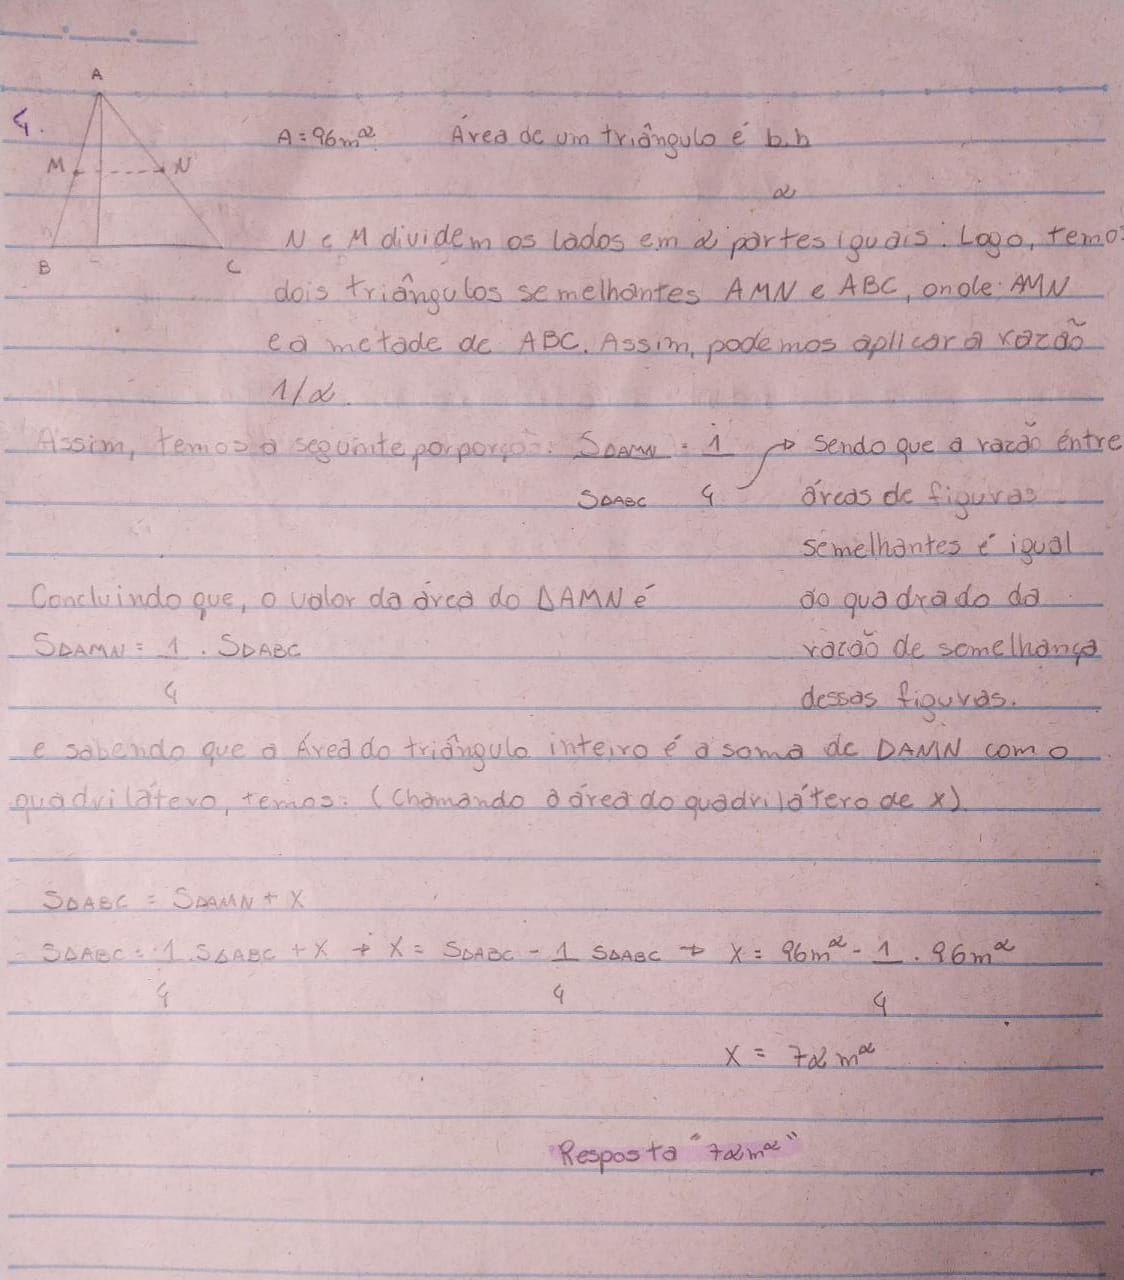 A
4.
A = 96m² Área de um triângulo é b.h
2
M N
N e M dividem os lados em 2 partes iguais. Logo, temos
B C
dois triângulos semelhantes AMN e ABC, onde AMN
e a metade de ABC. Assim, podemos aplicar a razão
1/2.
Assim, temos a seguinte porporção: S∆AMN = 1 → Sendo que a razão entre
S∆ABC 4 áreas de figuras
semelhantes é igual
Concluindo que, o valor da área do ∆AMN é ao quadrado da
S∆AMN = 1 . S∆ABC razão de semelhança
4 dessas figuras.
e sabendo que a Área do triângulo inteiro é a soma de ∆AMN com o
quadrilátero, temos: (Chamando a área do quadrilátero de x).
S∆ABC = S∆AMN + X
S∆ABC = 1 . S∆ABC + X → X = S∆ABC - 1 S∆ABC → X = 96m² - 1 . 96m²
4 4 4
X = 72 m²
Resposta "72m²"